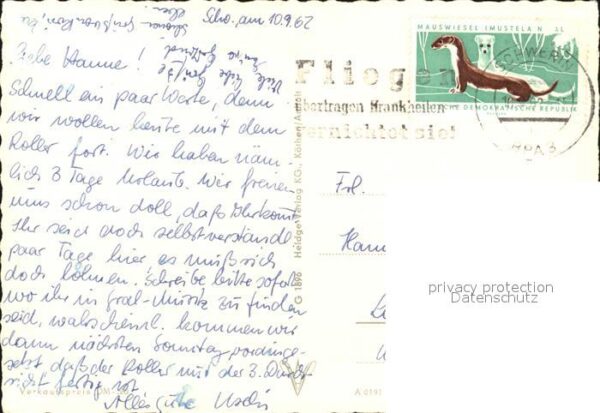 Scho., am 10.9.62
Liebe Hanne!
Viele liebe Grüße
Schnell ein paar Worte, denn
wir wollen heute mit dem
Roller fort. Wir haben näm-
lich 3 Tage Urlaub. Wir freuen
uns schon doll, daß Ihr kommt
Ihr seid doch selbstverständl.
paar Tage hier es muß sich
doch lohnen. Schreibe bitte sofort
wo ihr in Graal-Müritz zu finden
seid, wahrscheinl. kommen wir
dann nächsten Sonntag vorausge-
setzt, daß der Roller mit der 3. Durch-
sicht fertig ist
Alles Gute Uschi
Fliegen
übertragen Krankheiten
vernichtet sie!
MAUSWIESEL (MUSTELA N
DEMOKRATISCHE REPUBLIK
G 1896 Heldge-Verlag KG., Köthen/Anhalt
Frl.
Hann
privacy protection
Datenschutz
Verkaufspreis DM
A 019